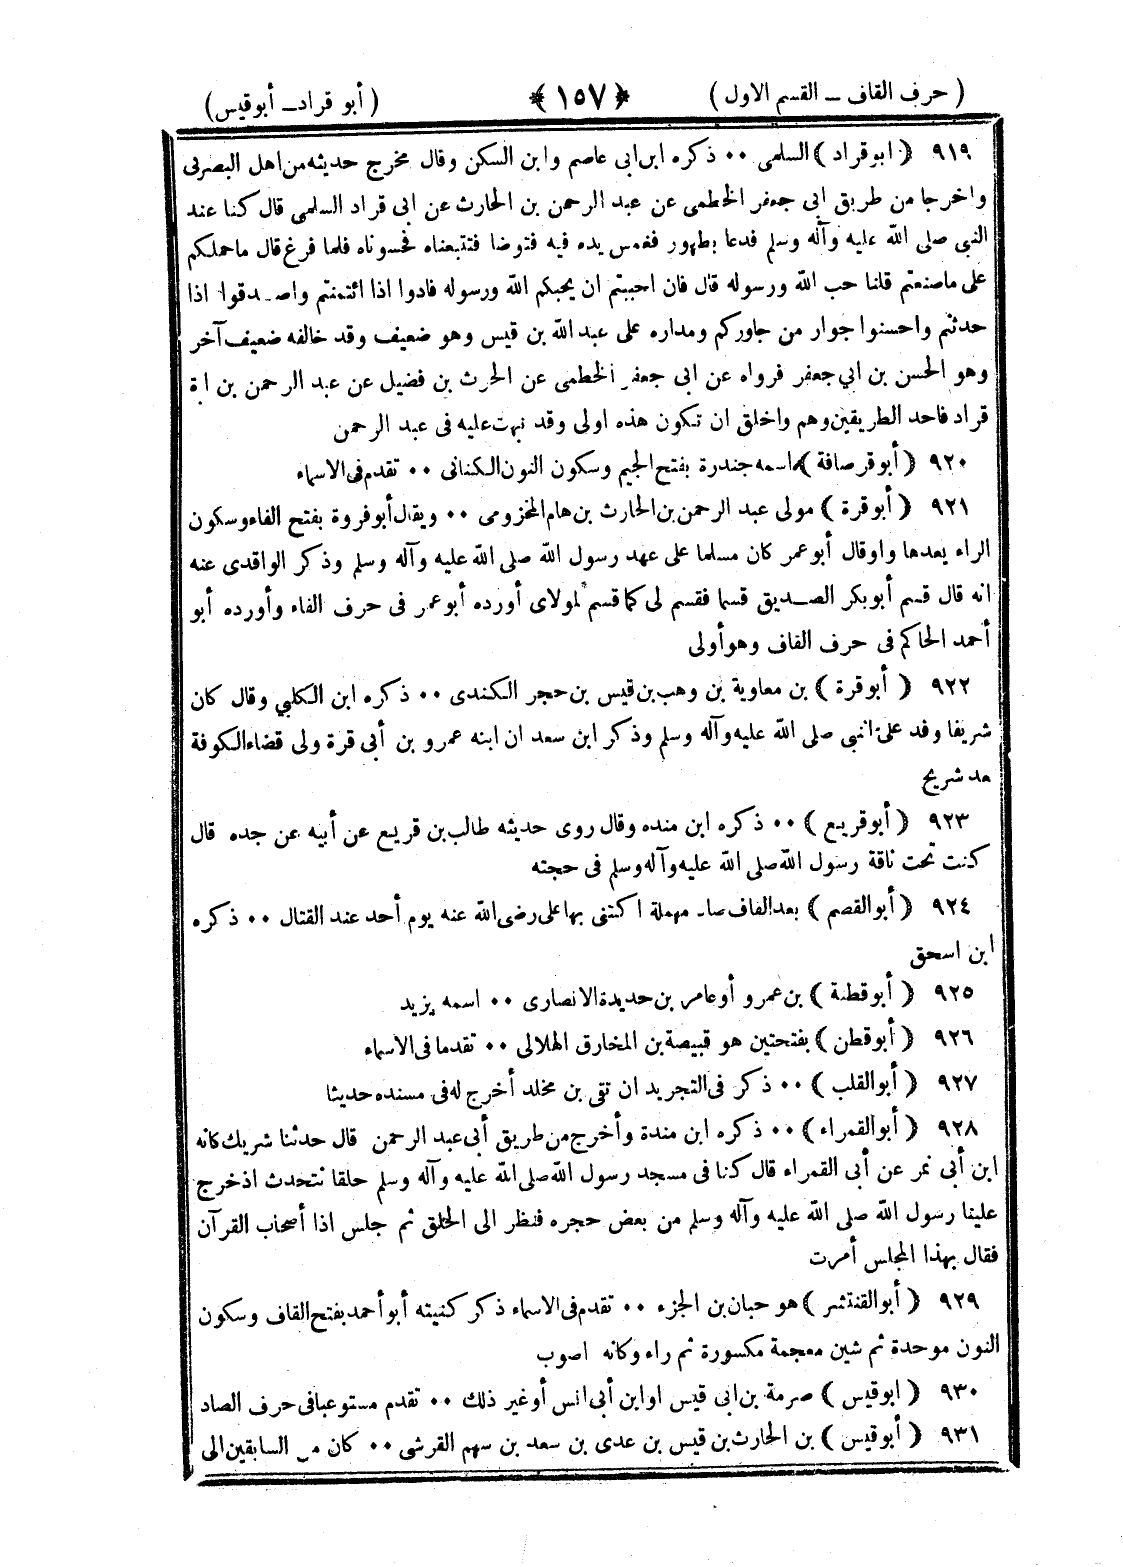 ( حرف القاف ــ القسم الاول ) ﴿ ١٥٧ ﴾ ( أبو قراد ــ أبوقيس )
٩١٩ ( ابوقراد ) السلمى ٠٠ ذكره ابن ابى عاصم وابن السكن وقال مخرج حديثه من اهل البصر فى
واخرجا من طريق ابى جعفر الخطمى عن عبد الرحمن بن الحارث عن ابى قراد السلمى قال كنا عند
النبى صلى الله عليه وآله وسلم فدعا بطهور فغمس يده فيه فتوضا فتتبعناه فحسوناه فلما فرغ قال ماحملكم
على ماصنعتم قلنا حب الله ورسوله قال فان احببتم ان يحبكم الله ورسوله فادوا اذا ائتمنتم واصـدقوا اذا
حدثتم واحسنوا جوار من جاوركم ومداره على عبد الله بن قيس وهو ضعيف وقد خالفه ضعيف آخر
وهو الحسن بن ابي جعفر فرواه عن ابى جعفر الخطمى عن الحرث بن فضيل عن عبد الرحمن بن ابة
قراد فاحد الطريقين وهم واخلق ان تكون هذه اولى وقد نبهت عليه فى عبد الرحمن
٩٢٠ ( أبوقرصافة ) اسمه جندرة بفتح الجيم وسكون النون الكنانى ٠٠ تقدم فى الاسماء
٩٢١ ( أبوقرة ) مولى عبد الرحمن بن الحارث بن هام المخزومى ٠٠ ويقال أبوفروة بفتح الفاء وسكون
الراء يعدها واوقال أبوعمر كان مسلما على عهد رسول الله صلى الله عليه وآله وسلم وذكر الواقدى عنه
انه قال قسم أبوبكر الصـديق قسما فقسم لى كما قسم لمولاى أورده أبوعمر فى حرف الفاء وأورده أبو
أحمد الحاكم فى حرف القاف وهوأولى
٩٢٢ ( أبوقرة ) بن معاوية بن وهب بن قيس بن حجر الكندى ٠٠ ذكره ابن الكلبي وقال كان
شريفا وفد على النبى صلى الله عليه وآله وسلم وذكر ابن سعد ان ابنه عمرو بن أبى قرة ولى قضاء الكوفة
عد شريح
٩٢٣ ( أبوقريع ) ٠٠ ذكره ابن منده وقال روى حديثه طالب بن قريع عن أبيه عن جده قال
كنت تحت ناقة رسول الله صلى الله عليه وآله وسلم فى حجته
٩٢٤ ( أبوالقصم ) بعد القاف صاد مهملة اكتنى بها على رضى الله عنه يوم أحد عند القتال ٠٠ ذكره
ابن اسحق
٩٢٥ ( أبوقطبة ) بن عمرو أوعامر بن حديدة الانصارى ٠٠ اسمه يزيد
٩٢٦ ( أبوقطن ) بفتحتين هو قبيصة بن المخارق الهلالى ٠٠ تقدما فى الاسماء
٩٢٧ ( أبوالقلب ) ٠٠ ذكر فى التجريد ان تقى بن مخلد أخرج له فى مسنده حديثا
٩٢٨ ( أبوالقمراء ) ٠٠ ذكره ابن مندة وأخرج من طريق أبى عبد الرحمن قال حدثنا شريك كانه
ابن أبى نمر عن أبى القمراء قال كنا فى مسجد رسول الله صلى الله عليه وآله وسلم حلقا نتحدث اذخرج
علينا رسول الله صلى الله عليه وآله وسلم من بعض حجره فنظر الى الحلق ثم جلس اذا أصحاب القرآن
فقال بهذا المجلس أمرت
٩٢٩ ( أبوالقنتشر ) هو حبان بن الجزء ٠٠ تقدم فى الاسماء ذكر كنيته أبوأحمد بفتح القاف وسكون
النون موحدة ثم شين معجمة مكسورة ثم راء وكانه اصوب
٩٣٠ ( ابوقيس ) صرمة بن ابى قيس اوابن أبى انس أوغير ذلك ٠٠ تقدم مستوعبا فى حرف الصاد
٩٣١ ( أبوقيس ) بن الحارث بن قيس بن عدى بن سعد بن سهم القرشى ٠٠ كان من السابقين الى